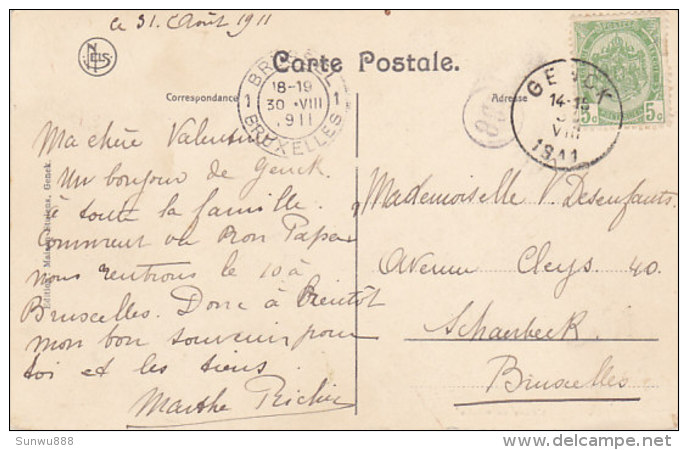 ce 31. Août 1911
NELS
Carte Postale.
Correspondance
Adresse
BRUSSEL
18-19
1 30 VIII 1
1911
BRUXELLES
GENCK
14-15
VIII
1911
5c 5c
Ma chère Valentine
Un bonjour de Genck
à toute la famille.
Comment va Bon Papa
nous rentrons le 10 à
Bruxelles. Donc à bientôt
mon bon souvenir pour
toi et les tiens
Marthe Richir
Mademoiselle V. Desenfants.
Avenue Cleys. 40.
Schaerbeek.
Bruxelles
Edition Maison Stulens, Genck.
Sunwu888
delcampe.net